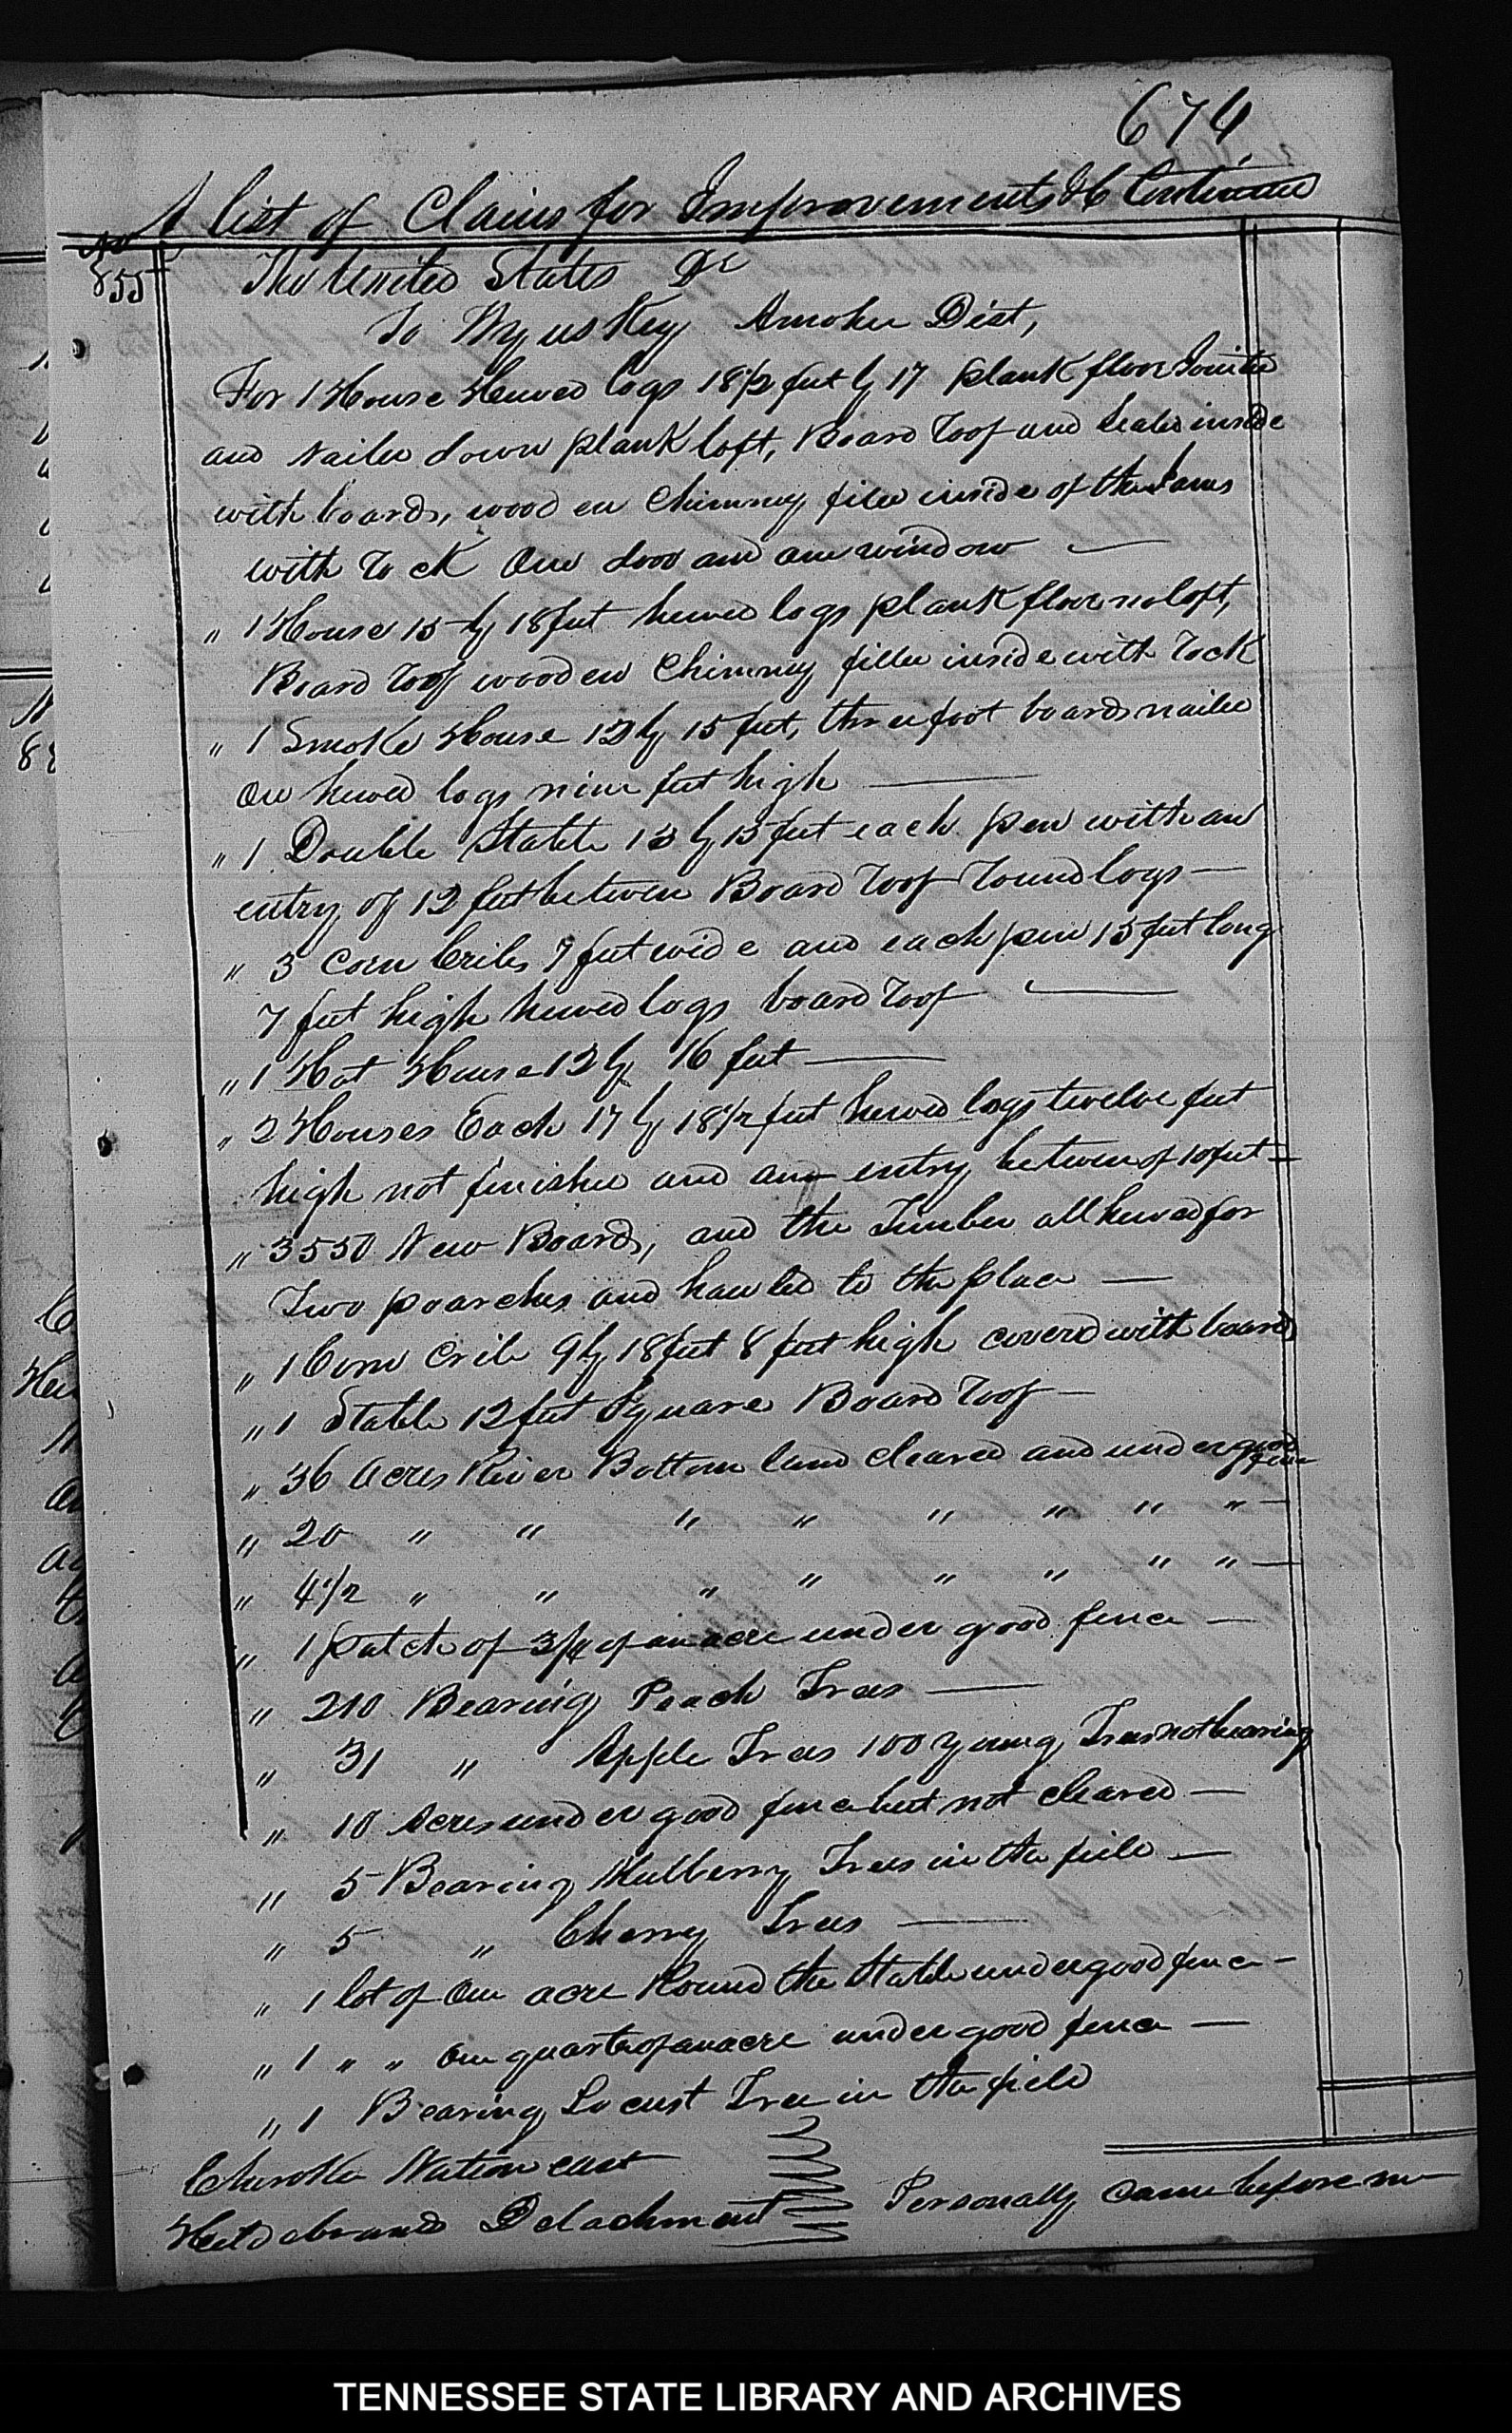 674
A list of Claims for Improvements &c Continued
No
855
The United States Dr
To Wyuskey Amohee Dist,
For 1 House Hewed logs 18½ feet by 17 plank floor Jointed
and Nailed down plank loft, Board roof and sealed inside
with boards, wooden Chimney filled inside of the Jams
with rock One door and one window —
" 1 House 15 by 18 feet hewed logs plank floor no loft,
Board roof wooden Chimney filled inside with rock
" 1 Smoke House 12 by 15 feet, three foot boards nailed
On hewed logs nine feet high —
" 1 Double Stable 13 by 13 feet each pen with an
entry of 12 feet between Board roof round logs —
" 3 Corn Cribs 7 feet wide and each pen 15 feet long
7 feet high hewed logs board roof —
" 1 Hot House 12 by 16 feet —
" 2 Houses Each 17 by 18½ feet hewed logs twelve feet
high not finished and an entry between of 10 feet —
" 3550 New Boards, and the Timber all hewed for
Two poarches and hawled to the place —
" 1 Corn Crib 9 by 18 feet 8 feet high covered with boards
" 1 Stable 12 feet Square Board roof —
" 36 Acres River Bottom land cleared and under good fence
" 20 " " " " " " " " —
" 4½ " " " " " " " " —
" 1 patch of 3/4 of an acre under good fence —
" 210 Bearing Peach Trees —
" 31 " Apple Trees 100 young Trees not bearing
" 10 Acres under good fence but not cleared —
" 5 Bearing Mulberry Trees in the field —
" 5 " Cherry Trees —
" 1 lot of One acre Round the Stable under good fence —
" 1 " " One quarter of an acre under good fence —
" 1 Bearing Locust Tree in the field
Cherokee Nation east
Hildebrands Detachment Personally Came before me
TENNESSEE STATE LIBRARY AND ARCHIVES